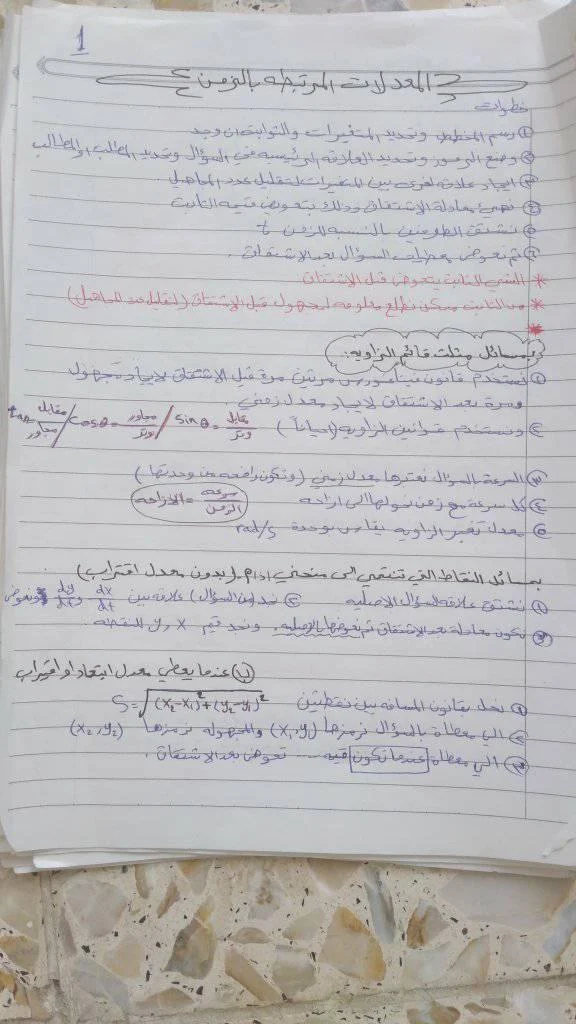 1
المعدلات المرتبطة بالزمن
خطوات
① رسم المخطط وتحديد المتغيرات والثوابت ان وجد
② وضع الرموز وتحديد العلاقة الرئيسية في السؤال وتحديد المطلب
③ ايجاد علاقة اخرى بين المتغيرات لتقليل عدد المجاهيل
④ نهيئ معادلة الاشتقاق وذلك بتعويض قيمة الثابت
⑤ نشتق الطرفين بالنسبة للزمن t
⑥ ثم نعوض معطيات السؤال بعد الاشتقاق.
* الشيئ الثابت يعوض قبل الاشتقاق
* من الثابت ممكن نطلع معلومة لمجهول قبل الاشتقاق (لتقليل عدد المجاهيل)
*
مسائل مثلث قائم الزاوية:
① نستخدم قانون فيثاغورس مرتين مرة قبل الاشتقاق لايجاد مجهول
ومرة بعد الاشتقاق لايجاد معدل زمني.
② ونستخدم قوانين الزاوية (احياناً) Sinθ = مقابل/وتر / Cosθ = مجاور/وتر / tan = مقابل/مجاور
③ السرعة بالسؤال نعتبرها معدل زمني (وتكون رافعة عن وحدتها)
④ كل سرعة مع زمن نحولها الى ازاحة سرعة/الزمن = الازاحة
⑤ معدل تغير الزاوية يقاس بوحدة rad/s
مسائل النقاط التي تنتمي الى منحني (بدون معدل اقتراب)
① نشتق علاقة السؤال الاصلية ② نجد (من السؤال) علاقة بين dx/dt و dy/dt ونعوض
③ نكون معادلة بعد الاشتقاق ثم نعوضها بالاصلية. ونجد قيم x, y النقطة.
عندما يعطي معدل ابتعاد او اقتراب
① نحل بقانون المسافة بين نقطتين S = √(x₂-x₁)²+(y₂-y₁)²
② الي معطاة بالسؤال نرمزها (x₁,y₁) والمجهولة نرمزها (x₂,y₂)
③ الي معطاة عندما تكون قيمه .... تعوض بعد الاشتقاق.